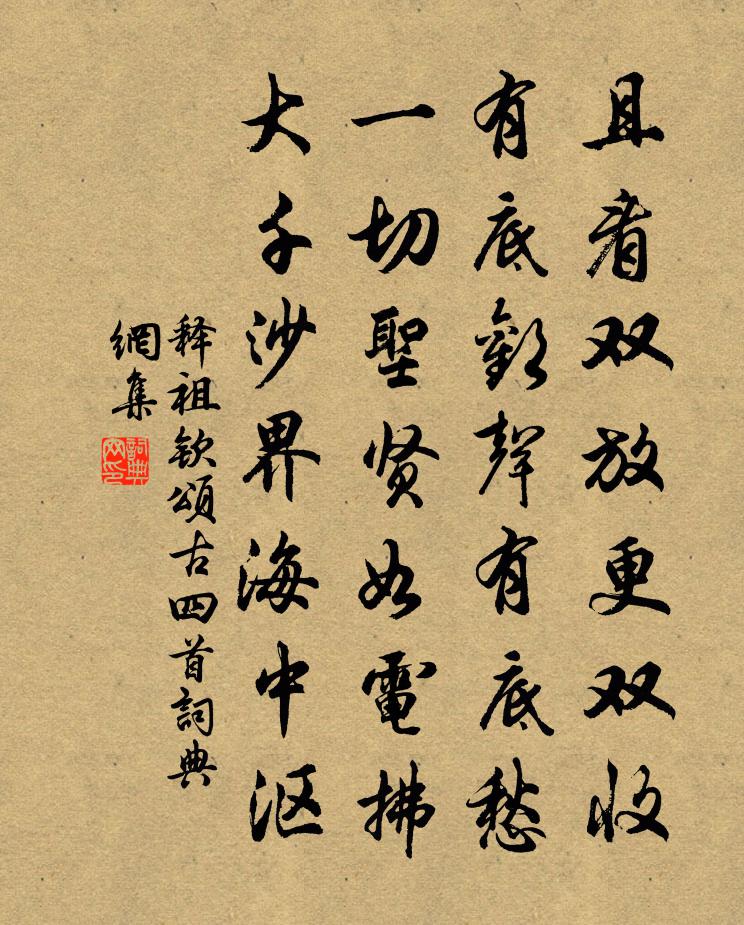 且看双放更双收
有底歡聲有底愁
一切聖贤如電拂
大千沙界海中沤
释祖钦頌古四首詞典
網集
詞典网印